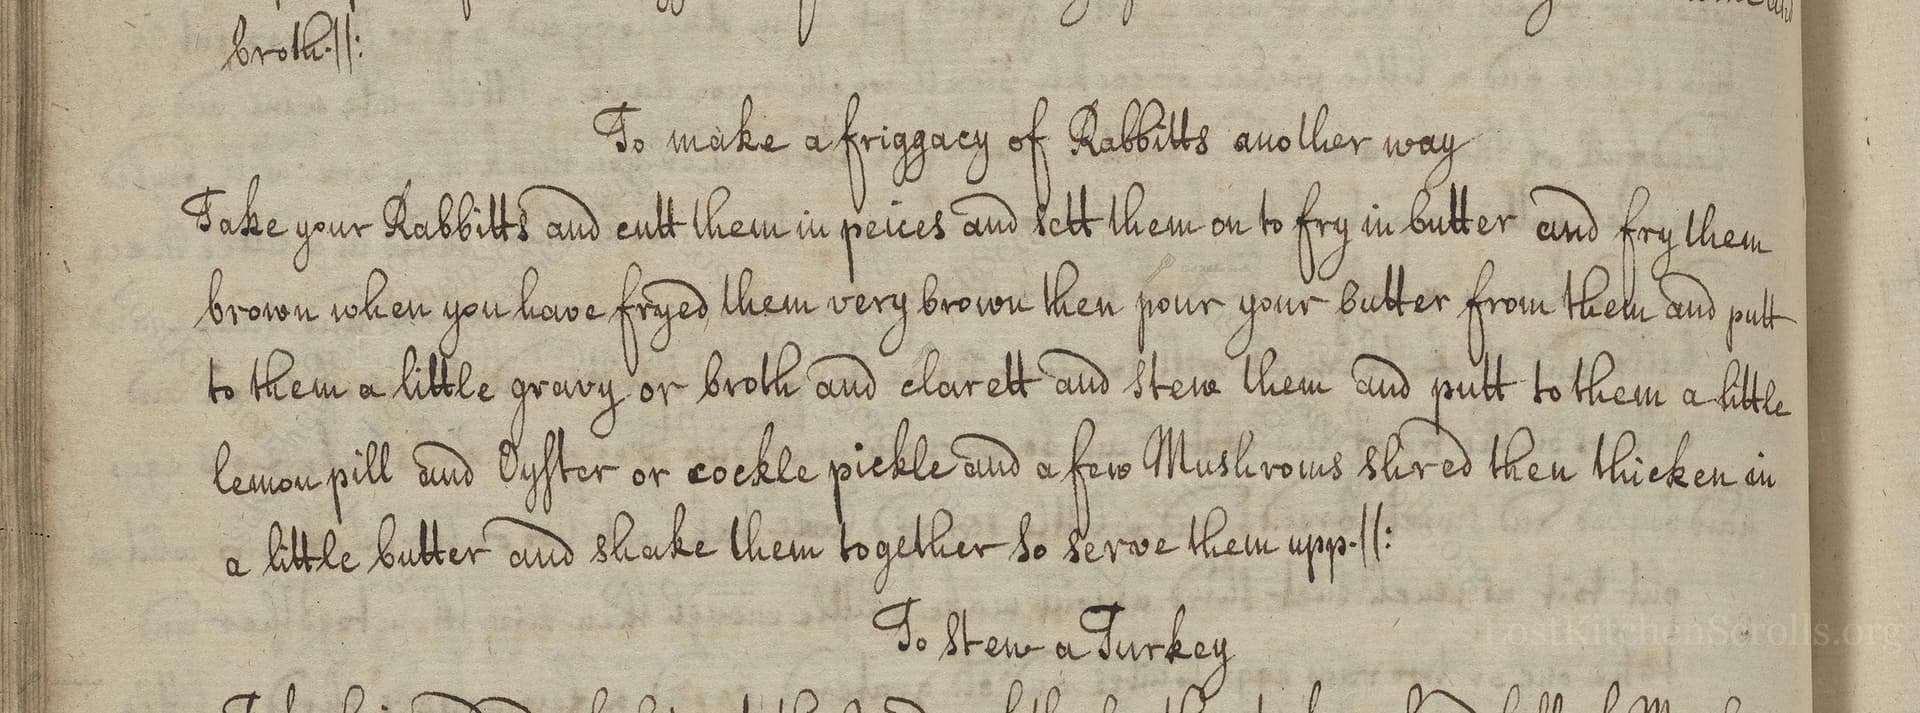 broth.||:
To make a friggacy of Rabbitts another way
Take your Rabbitts and cutt them in peices and sett them on to fry in butter and fry them
brown when you have fryed them very brown then pour your butter from them and putt
to them a little gravy or broth and clarett and stew them and putt to them a little
lemon pill and Oyster or cockle pickle and a few Mushroms shred then thicken in
a little butter and shake them together so serve them upp.||:
To stew a Turkey
LostKitchenScrolls.org